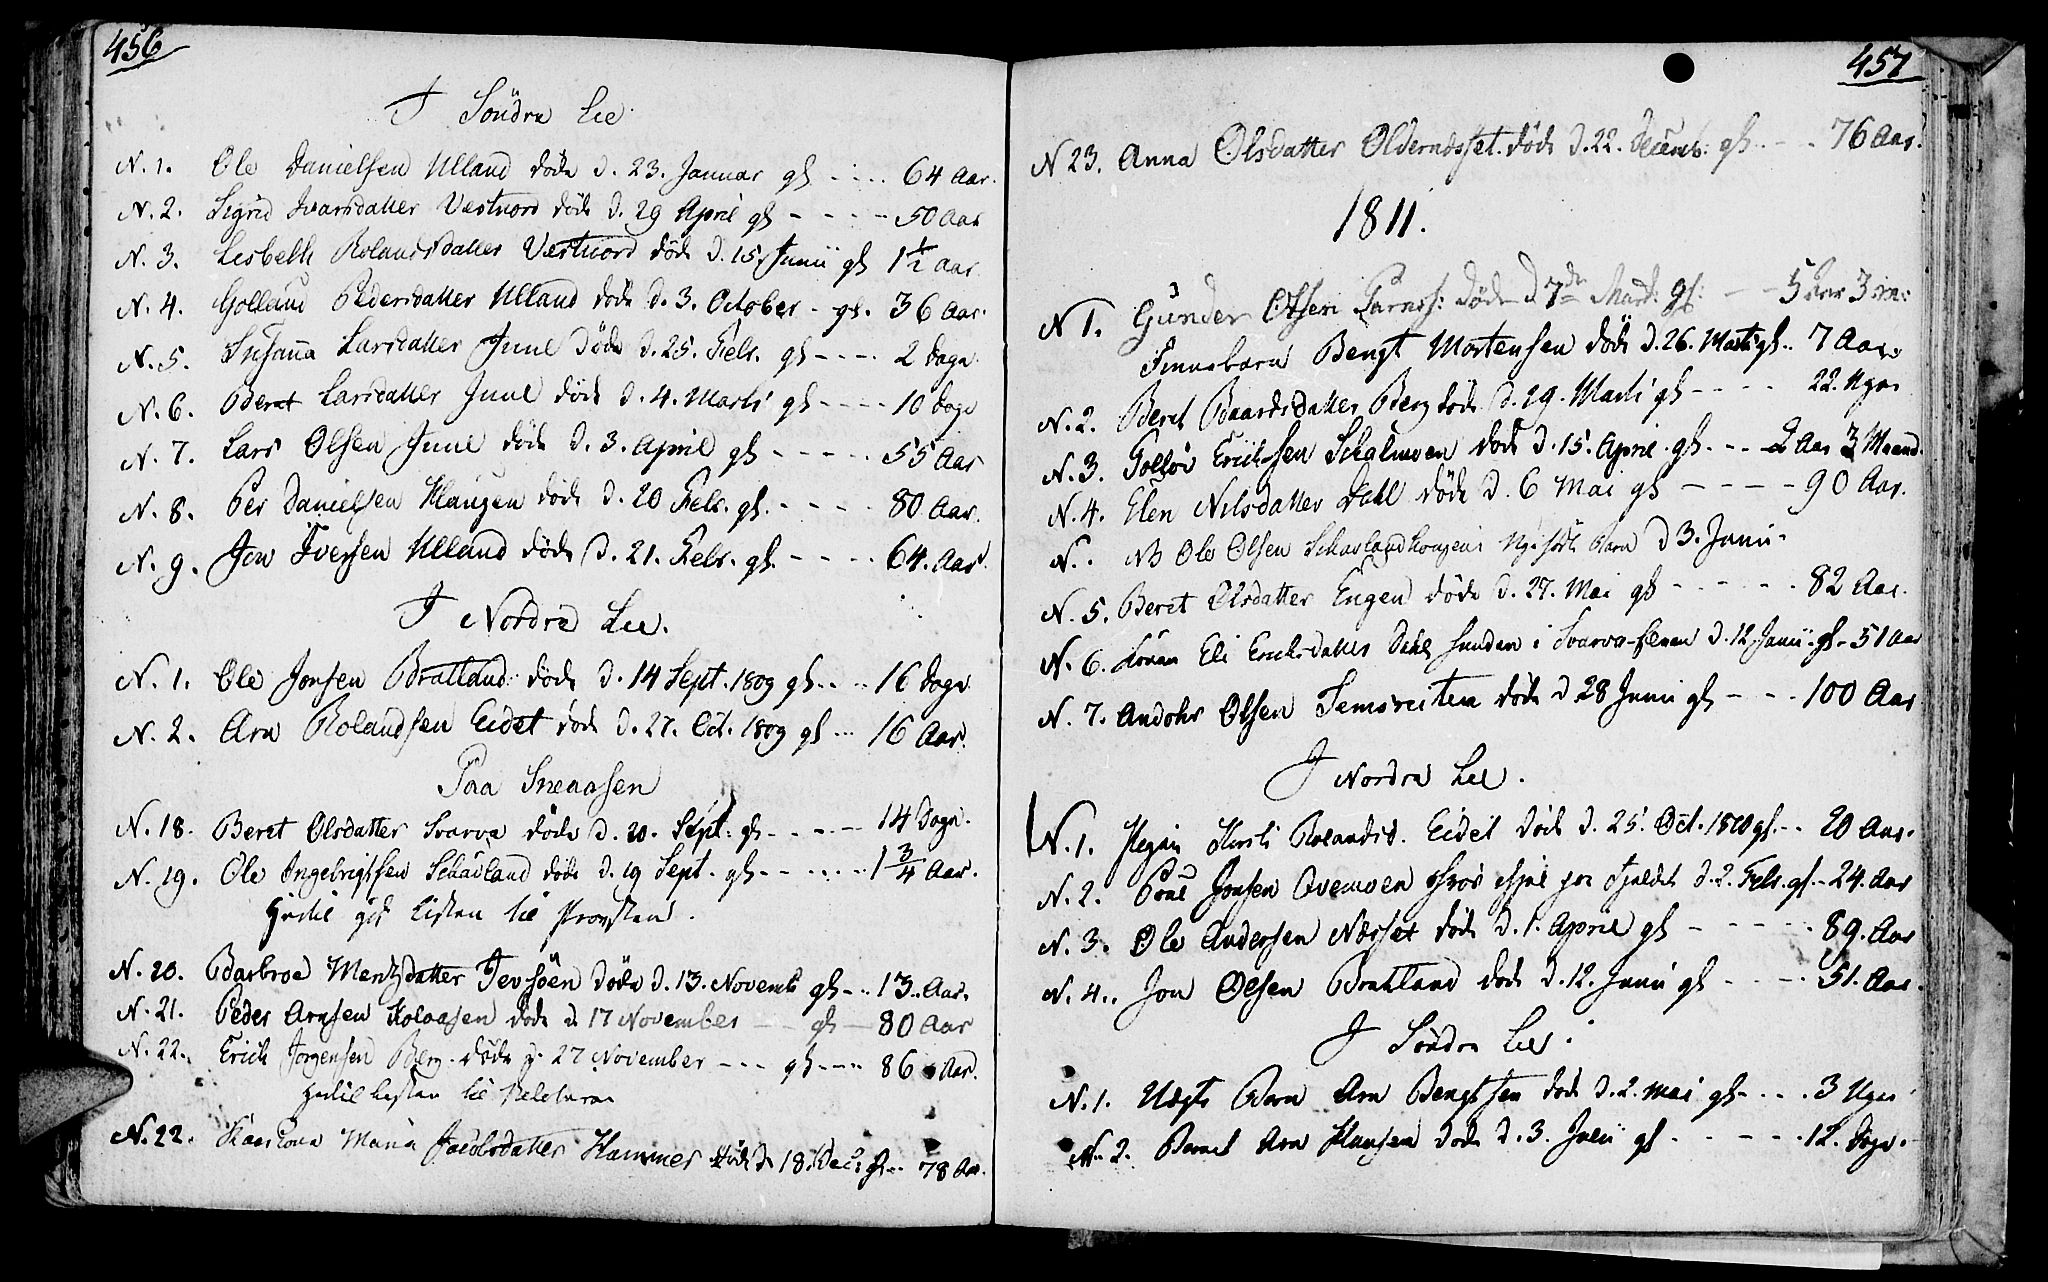 456
I Söndra Lie
N. 1. Ole Danielsen Ulland döde d. 23. Januar gl. 64 Aar.
N. 2. Sigrid Ivarsdatter Vestnord döde d. 29 April gl - - - - 50 Aar
N. 3. Lisbeth Rolandsdatter Vestnord döde d. 15. Junii gl 1 1/2 Aar
N. 4. Golland Pedersdatter Ulland döde d. 3. October - gl. 36 Aar.
N. 5. Susana Larsdatter Juul döde d. 25. Febr. gl - - - - 2 dage.
N. 6. Beret Larsdatter Juul döde d. 4. Marti gl - - - - 10 dage
N. 7. Lars Olsen Juul döde d. 3. April gl - - - - - 55 Aar
N. 8. Per Danielsen Haugen döde d. 20 Febr. gl. - - - - 80 Aar.
N. 9. Jon Iversen Ulland döde d. 21. Febr. gl. - - - - 64. Aar
I Nordre Lie.
N. 1. Ole Jonsen Bratland döde d. 14 Sept. 1809 gl. 16 dage
N. 2. Arn Rolandsen Eidet döde d. 27. Oct. 1809 gl ... 16 Aar.
Paa Sneaasen
N. 18. Beret Olsdatter Svarva döde d. 20. Sept: gl - - - - - 14 Dage.
N. 19. Ole Ingebrigtsen Schavland döde d. 19 Sept. gl - - - - - 1 3/4 Aar.
Hertil gik Listen til Provsten.
N. 20. Barbroe Mentzdatter Jevsöen döde d. 13. Novemb gl - .. 13.. Aar.
N. 21. Peder Arnsen Holaasen döde d 17 November - - gl - 80 Aar
N. 22. Erich Jörgensen Berg. döde d. 27 November - - - gl - - - 86 Aar.
Hertil Listen til
N. 22. Maria Jacobsdatter Hammer döde d 18. Dec: gl .. 78 Aar.
457
N 23. Anna Olsdatter döde d. 22. Decemb: gl. - - . 76 Aar.
1811.
N 1. Gunder Olsen döde d 7de Mart: gl: - - 5 Aar 3 m:
Finnebarn Bengt Mortensen döde d. 26. Marti gl .. 7 Aar.
N. 2. Beret Baardsdatter Berg döde d. 29. Marti gl - - - - 22. Uger
N. 3. Erichsen Schalmoen döde d. 15. April. gl. - - - 2 Aar 3 Maand.
N. 4. Elen Nilsdatter Dahl döde d. 6 Mai gl - - - - 90 Aar.
N. . NB Ole Olsen Schavlandhougens Barn d 3. Junii.
N. 5. Beret Olsdatter Engen döde d. 27. Mai gl - - - - - 82 Aar.
N. 6. Konen Eli Erichsdatter Dahl funden i Svarva-Elven d. 12. Junii. gl - 51 Aar
N. 7. Olsen döde d 28 Junii gl - - - . 100 Aar
I Nordre Lie.
N. 1. Kirsti Rolandsd. Eidet döde d. 25. Oct. 1810 gl. - . 20 Aar.
N. 2. Poul Jonsen Ovemoen d. 2. Febr. gl. - 24. Aar
N. 3. Ole Andersen Næsset döde d. 1. April gl - - - - - 89. Aar
N. 4. Jon Olsen Bratland döde d. 12. Junii gl - - - . 51. Aar.
I Söndre Lie.
N. 1. Barn Arn Bengtsen döde d. 2. Mai gl - . . . 3 Uger
N. 2. Barnet Arn Hansen döde d. 3. Julii gl - - - - - 12. Dage.